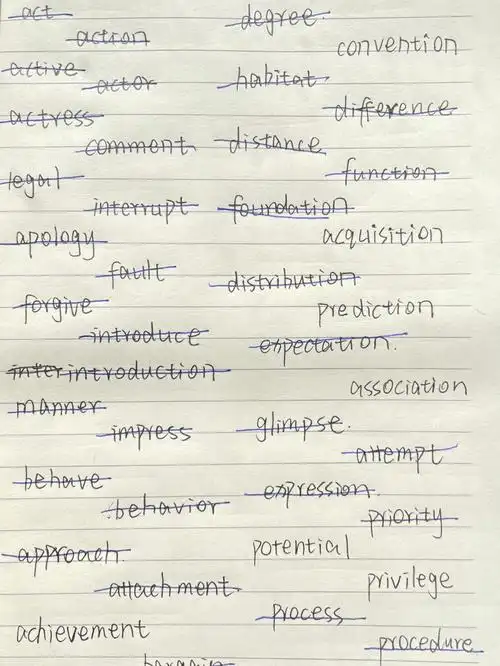 act
degree
action
convention
active
actor
habitat
difference
actress
comment
distance
function
legal
interrupt
foundation
apology
acquisition
fault
distribution
forgive
prediction
introduce
expectation
inter introduction
association
manner
impress
glimpse
attempt
behave
behavior
expression
priority
approach
potential
attachment
privilege
process
achievement
procedure